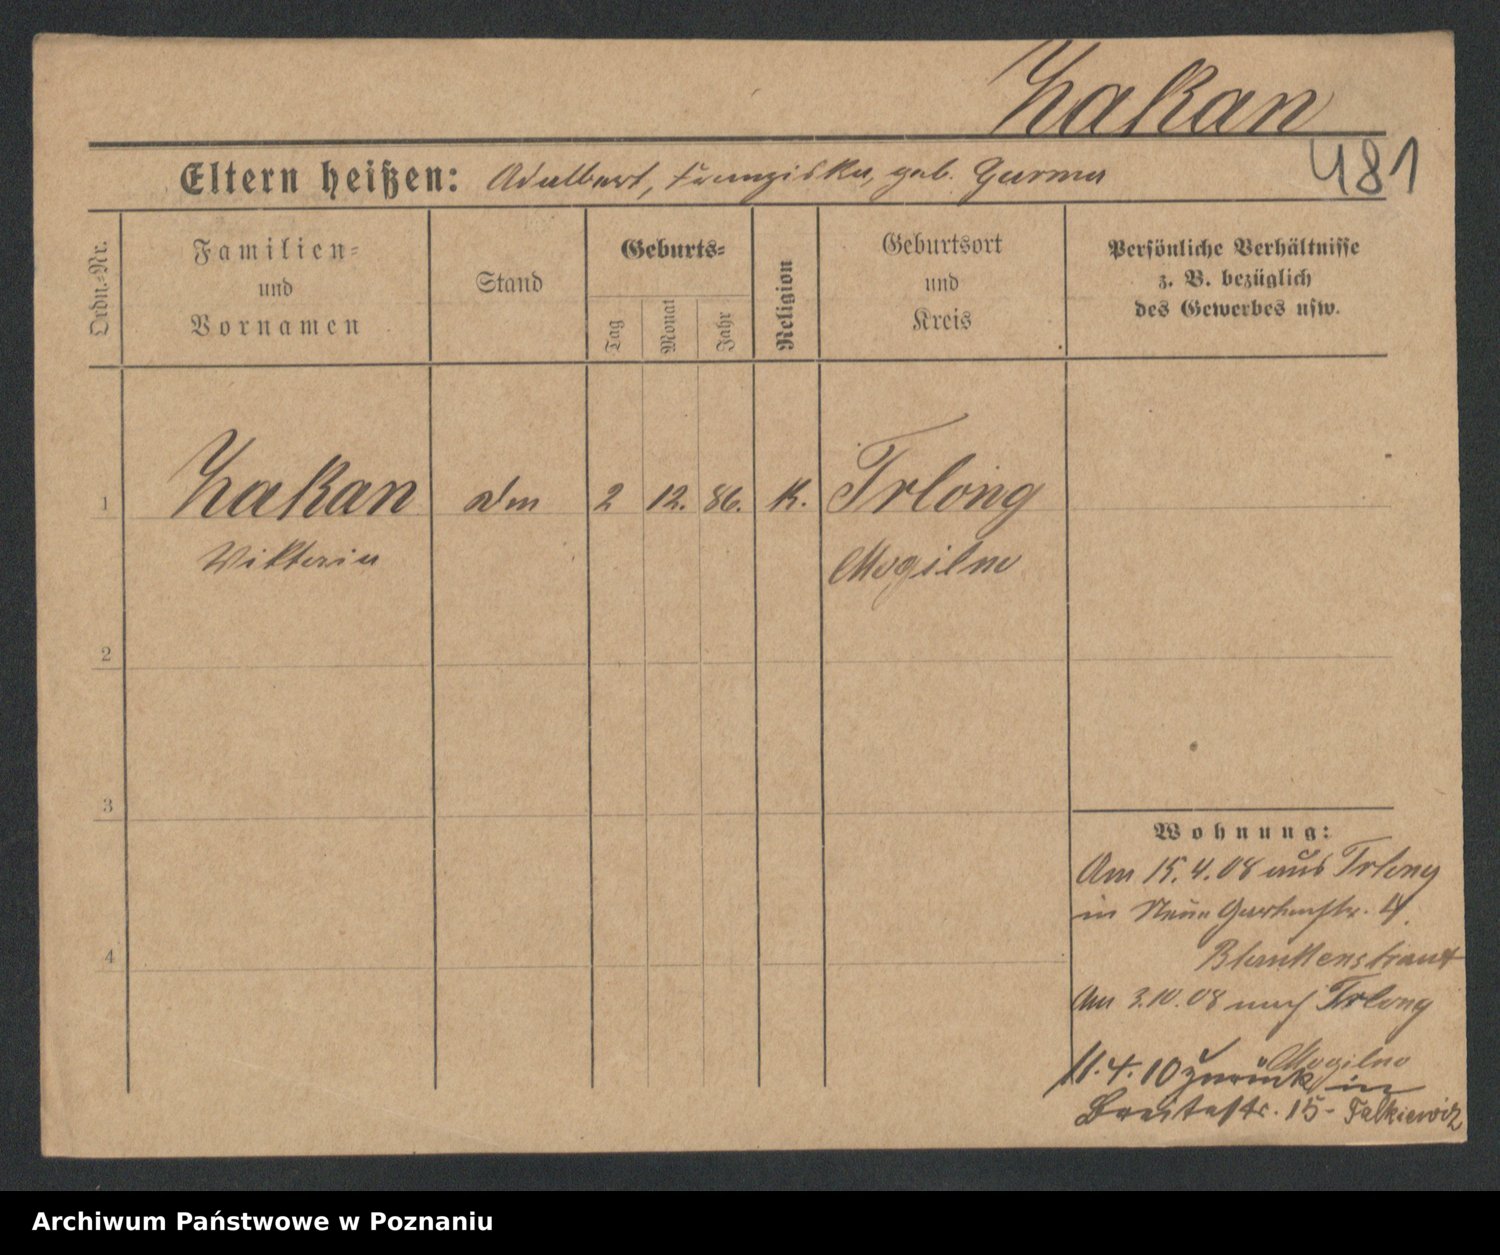 Zakan
481
Eltern heißen: Adalbert, Franziska, geb. Gurma
Ordn.-Nr.
Familien-
und
Vornamen
Stand
Geburts-
Tag
Monat
Jahr
Religion
Geburtsort
und
Kreis
Persönliche Verhältnisse
z. B. bezüglich
des Gewerbes usw.
1 Zakan 2 12. 86. K. Trlong
Viktoria Mogilno
2
3
4
Wohnung:
Am 15.4.08 aus Trlong
in Neue Gartenstr.
Am 3.10.08 nach Trlong
Mogilno
11.4.10 zurück in
Breitestr. 15 - Falkiewicz
Archiwum Państwowe w Poznaniu